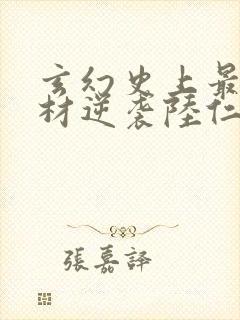 玄幻史上最
材逆袭陸仁
張嘉譯